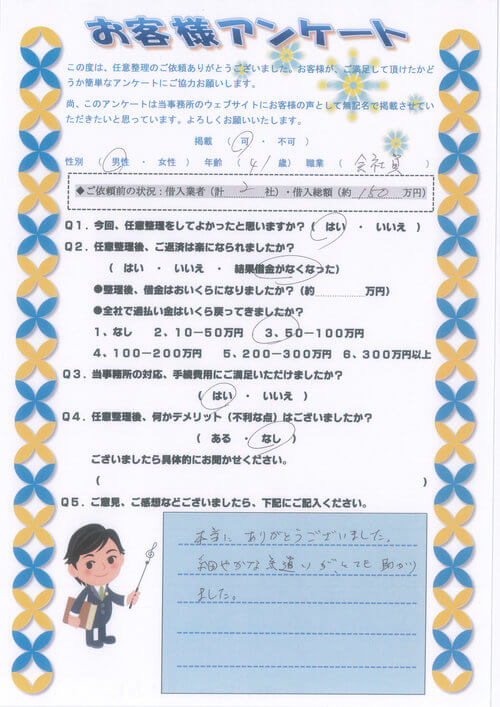 お客様アンケート
この度は、任意整理のご依頼ありがとうございました。お客様が、ご満足して頂けたかど
うか簡単なアンケートにご協力お願いします。
尚、このアンケートは当事務所のウェブサイトにお客様の声として無記名で掲載させてい
ただきたいと思っています。よろしくお願いいたします。
掲載 ( 可 ・ 不可 )
性別 ( 男性 ・ 女性 ) 年齢 ( 41 歳) 職業 ( 会社員 )
◆ご依頼前の状況:借入業者(計 2 社)・借入総額(約 150 万円)
Q1.今回、任意整理をしてよかったと思いますか?( はい ・ いいえ )
Q2.任意整理後、ご返済は楽になられましたか?
( はい ・ いいえ ・ 結果借金がなくなった)
●整理後、借金はおいくらになりましたか?(約 万円)
●全社で過払い金はいくら戻ってきましたか?
1、なし 2、10-50万円 3、50-100万円
4、100-200万円 5、200-300万円 6、300万円以上
Q3.当事務所の対応、手続費用にご満足いただけましたか?
( はい ・ いいえ )
Q4.任意整理後、何かデメリット(不利な点)はございましたか?
( ある ・ なし )
ございましたら具体的にお聞かせください。
( )
Q5.ご意見、ご感想などございましたら、下記にご記入ください。
本当に ありがとうございました。
細やかな気遣いがとても 助かり
ました。